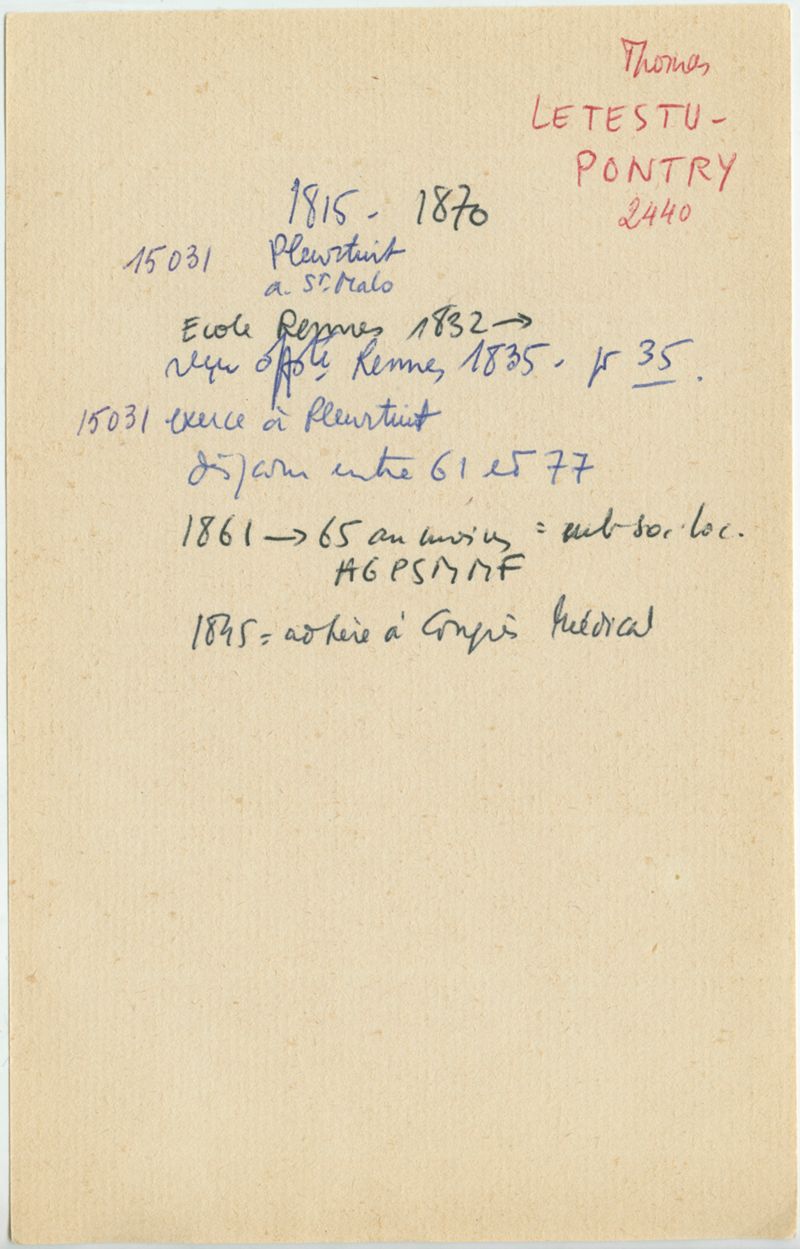 Thomas
LETESTU-
PONTRY
2440
1815 - 1870
15031 Pleurtuit
a. St. Malo
Ecole Rennes 1832 →
reçu off. Rennes 1835 - 35.
15031 exerce à Pleurtuit
entre 61 et 77
1861 → 65 au moins = soc. loc.
AGPSMMF
1845 = adhère à Congrès Médical